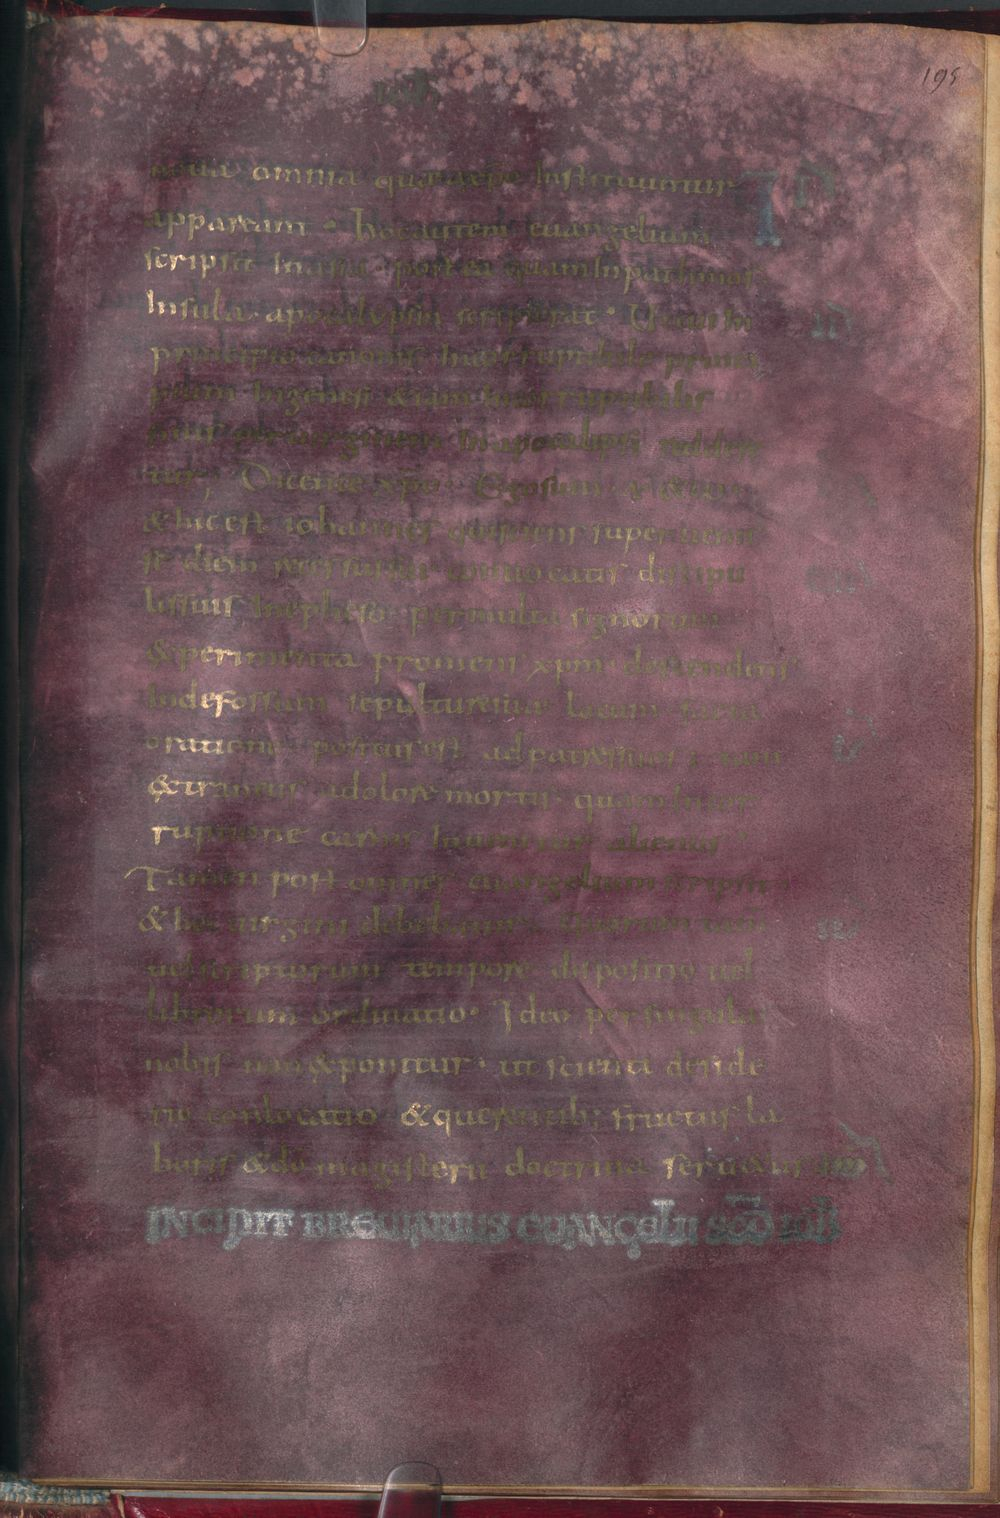 195
noua omnia quae a xpo Instituuntur
appareant · Hoc autem euangelium
scripsit In asia · post ea quam In pathmos
Insula · apocalypsin scripserat · Ut cui In
principio canonis Incorruptibile princi
pium In genesi &iam Incorruptibilis
finis per uirginem In apocalipsi redder&
tur, Dicente xpo · Ego sum · α & ω
& hic est iohannes qui sciens superuenis
se diem recessus sui conuocatis discipu
lis suis, In epheso · per multa signorum
experimenta promens xpm · descendens
In defossum sepulturae suae locum facta
oratione · positus est ad patres suos ; tam
&traneus a dolore mortis · quam In cor
ruptione carnis Inuenitur alienus ·
Tamen post omnes euangelium scripsit
& hoc uirgini debebatur · Quorum tam
uel scripturarum tempore dispositio uel
librorum ordinatio · Ideo per singula
nobis non &ponitur · ut sciendi deside
rio conlocatio & querentib; fructus la
boris & do magisterii doctrina seru&ur
INCIPIT BREUIARIUS EUANGELII SCD IOH